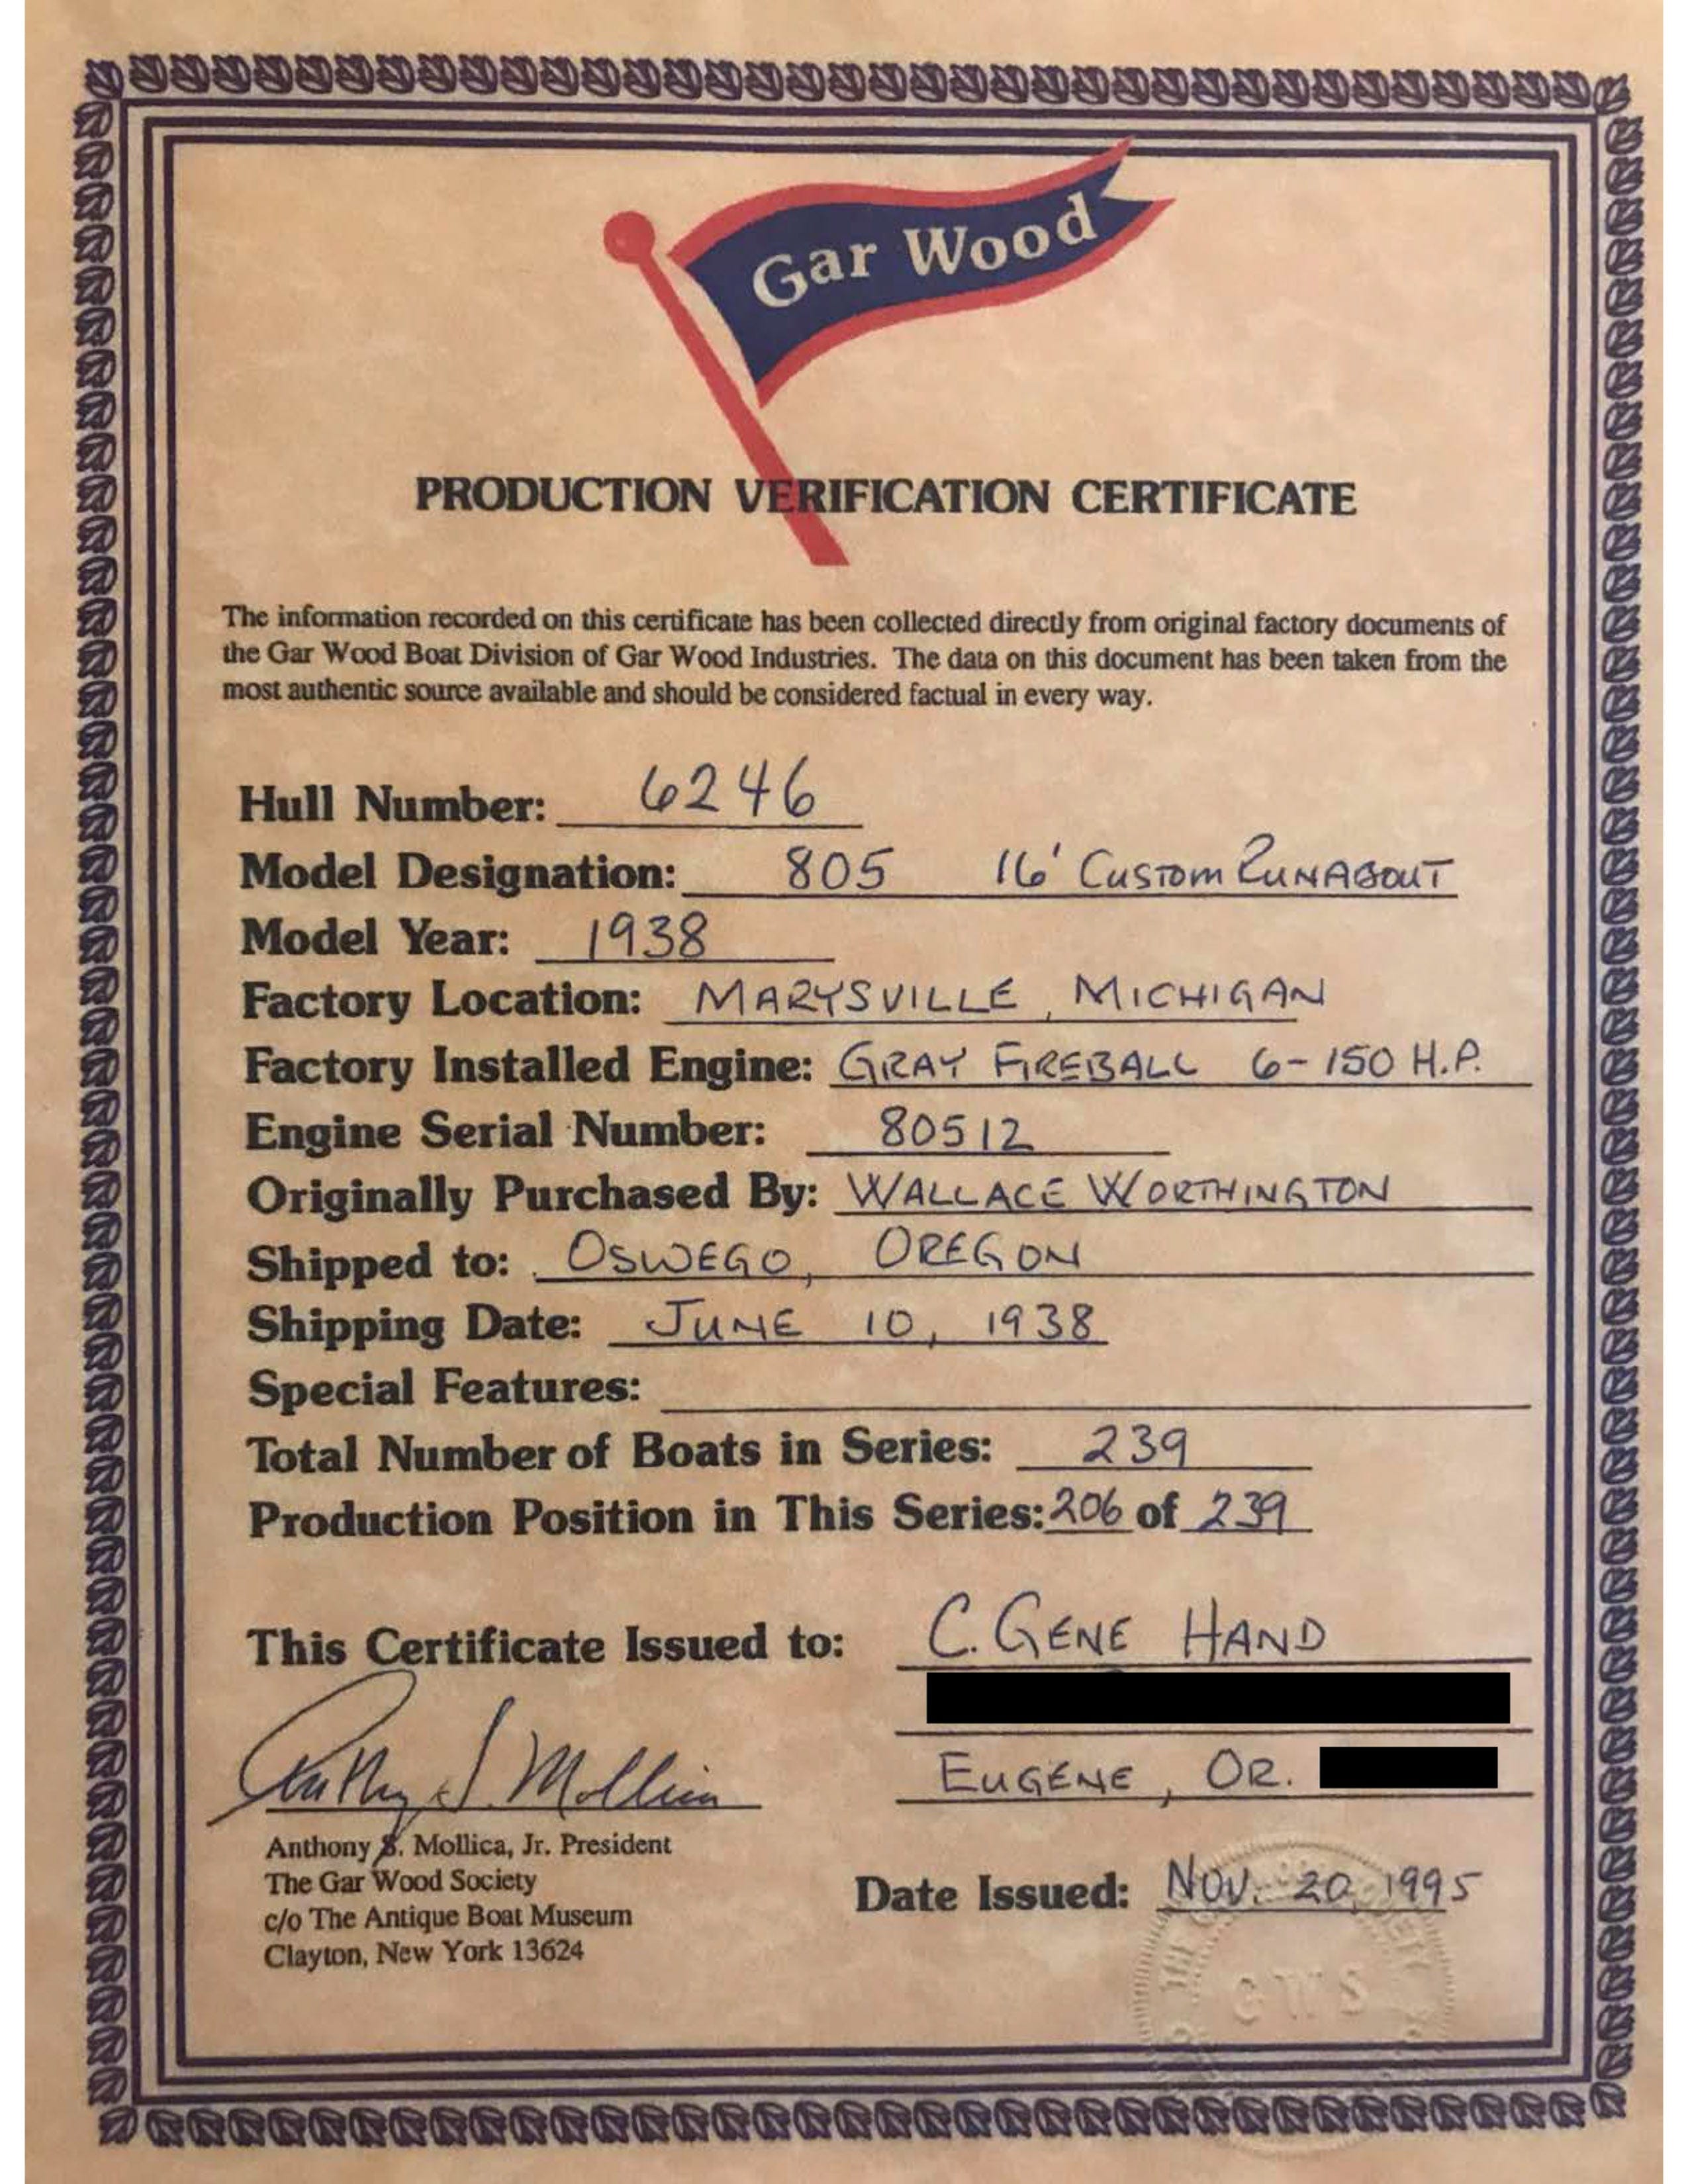 Gar Wood
PRODUCTION VERIFICATION CERTIFICATE
The information recorded on this certificate has been collected directly from original factory documents of
the Gar Wood Boat Division of Gar Wood Industries. The data on this document has been taken from the
most authentic source available and should be considered factual in every way.
Hull Number: 6246
Model Designation: 805 16' CUSTOM RUNABOUT
Model Year: 1938
Factory Location: MARYSVILLE, MICHIGAN
Factory Installed Engine: GRAY FIREBALL 6-150 H.P.
Engine Serial Number: 80512
Originally Purchased By: WALLACE WORTHINGTON
Shipped to: OSWEGO, OREGON
Shipping Date: JUNE 10, 1938
Special Features:
Total Number of Boats in Series: 239
Production Position in This Series: 206 of 239
This Certificate Issued to: C. GENE HAND
EUGENE, OR.
Anthony S. Mollica
Anthony S. Mollica, Jr. President
The Gar Wood Society
c/o The Antique Boat Museum
Clayton, New York 13624
Date Issued: NOV. 20, 1995
GWS